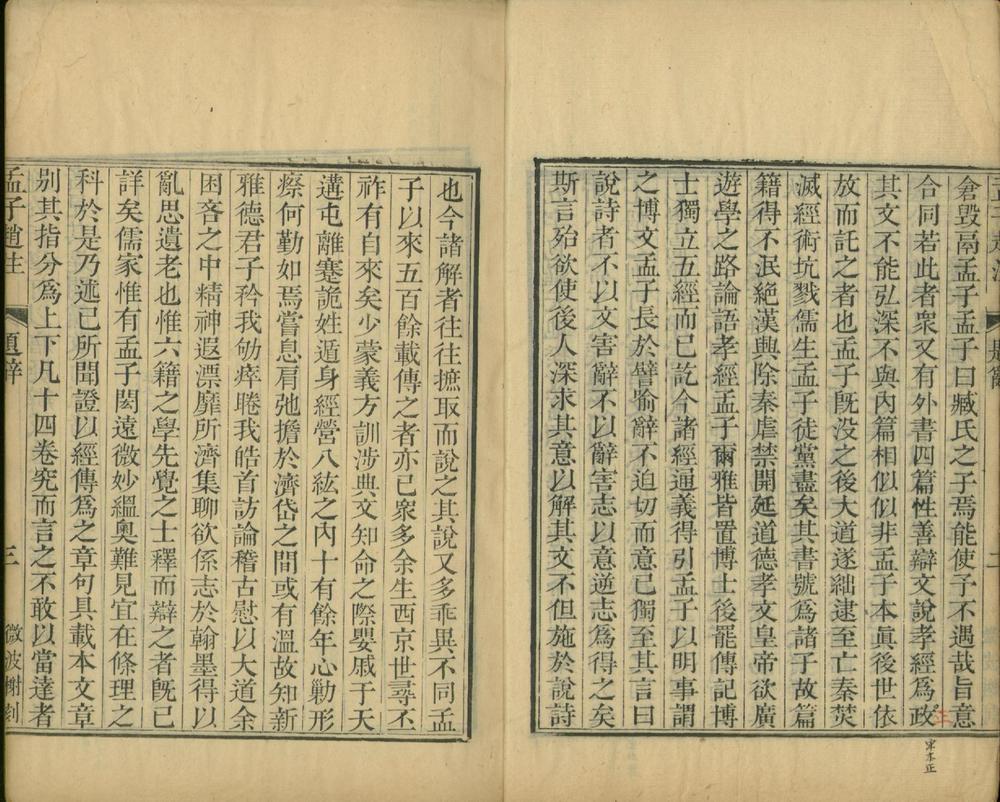 倉毀鬲孟子孟子曰臧氏之子焉能使子不遇哉旨意
合同若此者衆又有外書四篇性善辯文說孝經爲政
其文不能弘深不與內篇相似似非孟子本眞後世依
放而託之者也孟子旣没之後大道遂絀逮至亡秦焚
滅經術坑戮儒生孟子徒黨盡矣其書號爲諸子故篇
籍得不泯絶漢興除秦虐禁開延道德孝文皇帝欲廣
遊學之路論語孝經孟子爾雅皆置博士後罷傳記博
士獨立五經而已訖今諸經通義得引孟子以明事謂
之博文孟子長於譬喻辭不迫切而意已獨至其言曰
說詩者不以文害辭不以辭害志以意逆志爲得之矣
斯言殆欲使後人深求其意以解其文不但施於說詩
宋本正
也今諸解者往往摭取而說之其說又多乖異不同孟
子以來五百餘載傳之者亦已衆多余生西京世㝷丕
祚有自來矣少蒙義方訓涉典文知命之際嬰戚于天
遘屯離蹇詭姓遁身經營八紘之內十有餘年心勦形
瘵何勤如焉嘗息肩弛擔於濟岱之間或有溫故知新
雅德君子矜我劬瘁睠我皓首訪論稽古慰以大道余
困吝之中精神遐漂靡所濟集聊欲係志於翰墨得以
亂思遺老也惟六籍之學先覺之士釋而辯之者旣已
詳矣儒家惟有孟子閎遠微妙縕奧難見宜在條理之
科於是乃述已所聞證以經傳爲之章句具載本文章
别其指分爲上下凡十四卷究而言之不敢以當達者
孟子趙注 題辭 三 微波榭刻